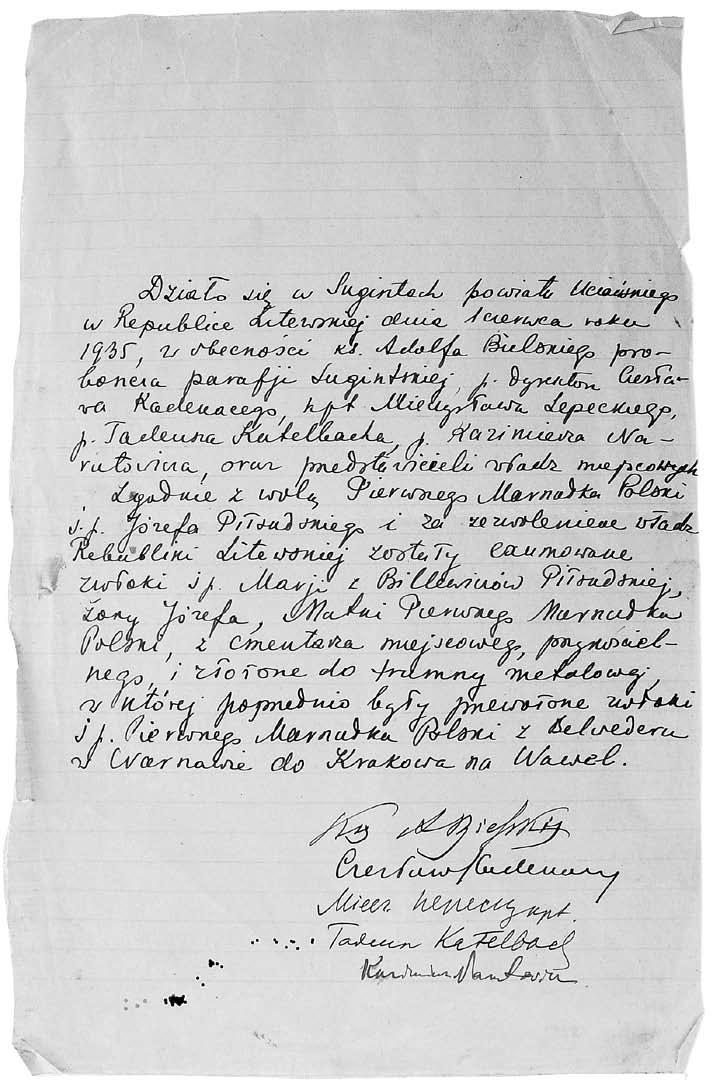 Działo się w Sugintach powiatu Uciańskiego
w Republice Litewskiej dnia 1 czerwca roku
1935, w obecności ks. Adolfa Bielskiego pro-
boszcza parafji Sugintskiej, p. dyrektora Czesła-
wa Kadenacego, kpt. Mieczysława Lepeckiego,
p. Tadeusza Katelbacha, p. Kazimierza Na-
rutowicza, oraz przedstawicieli władz miejscowych
Zgodnie z wolą Pierwszego Marszałka Polski
ś. p. Józefa Piłsudskiego i za zezwoleniem władz
Republiki Litewskiej zostały exhumowane
zwłoki ś p. Marji z Billewiczów Piłsudskiej,
żony Józefa, Matki Pierwszego Marszałka
Polski, z cmentarza miejscowego, przykościel-
nego, i złożone do trumny metalowej,
w której poprzednio były przewożone zwłoki
ś p. Pierwszego Marszałka Polski z Belwederu
w Warszawie do Krakowa na Wawel.
Ks A Bielski
Czesław Kadenacy
Miecz Lepecki kpt.
Tadeusz Katelbach
Kazimierz Narutowicz